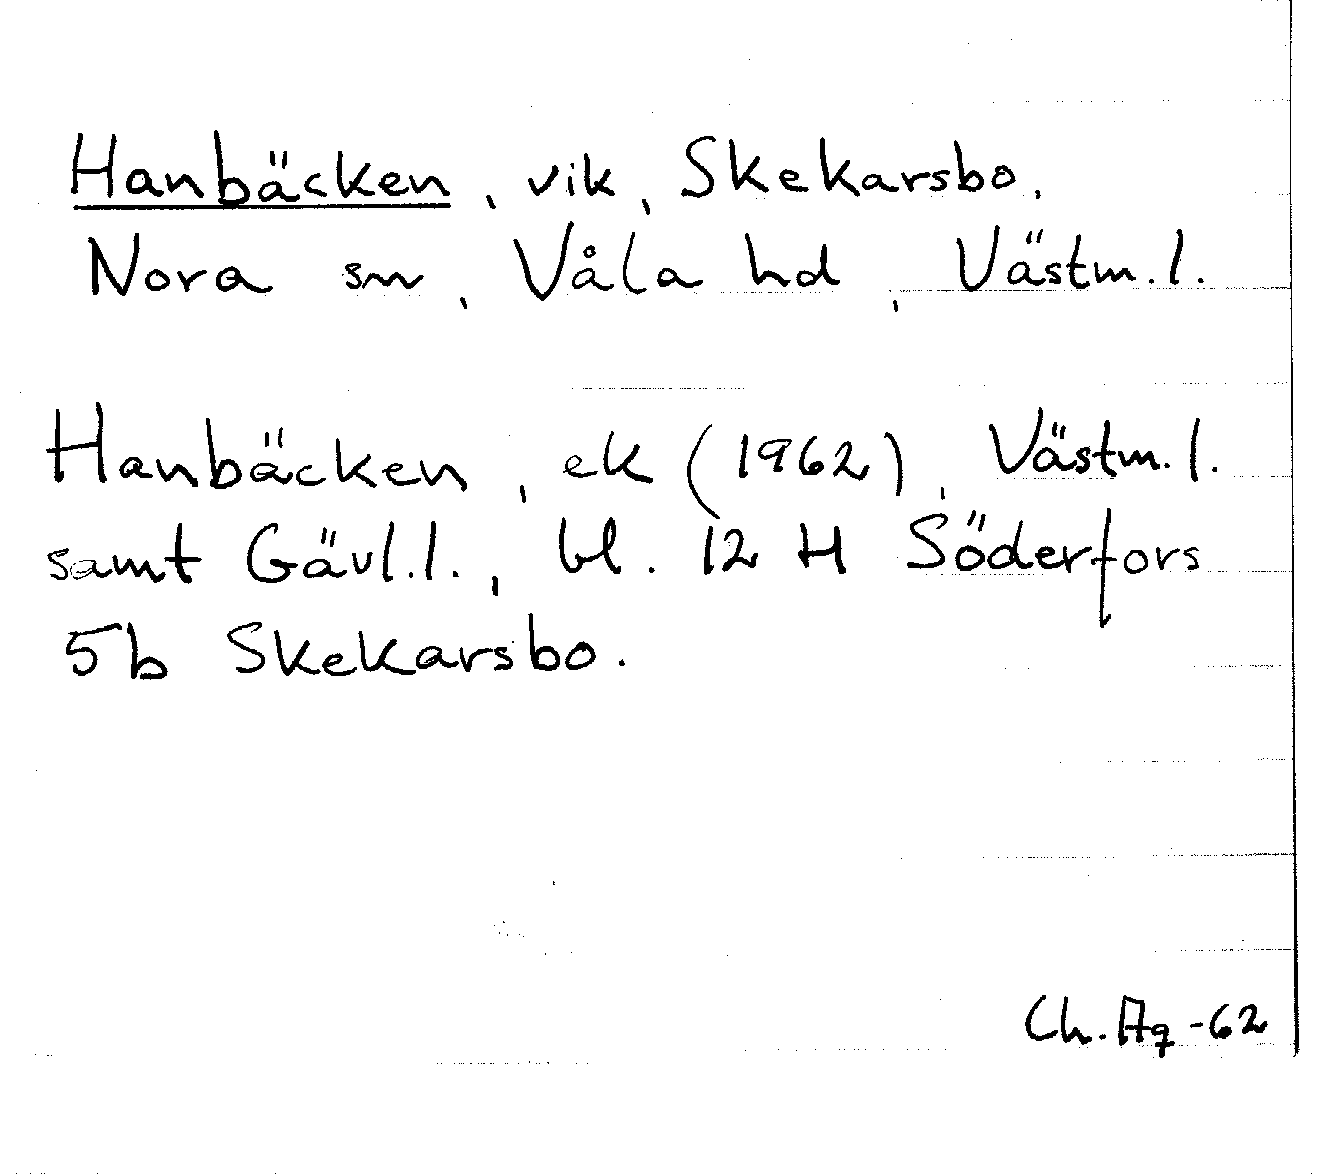 Hanbäcken, vik, Skekarsbo,
Nora sn, Våla hd, Västm.l.
Hanbäcken, ek (1962), Västm.l.
samt Gävl.l., bl. 12 H Söderfors
5b Skekarsbo.
Ch. Ag -62